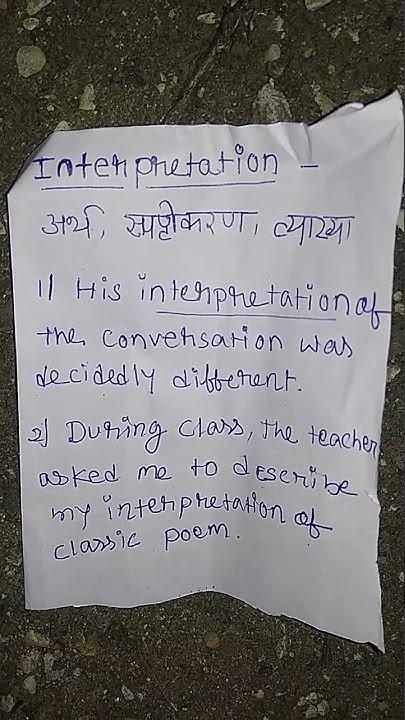 Interpretation -
अर्थ, स्पष्टीकरण, व्याख्या
1) His interpretation of
the conversation was
decidedly different.
2) During class, the teacher
asked me to describe
my interpretation of
classic poem.